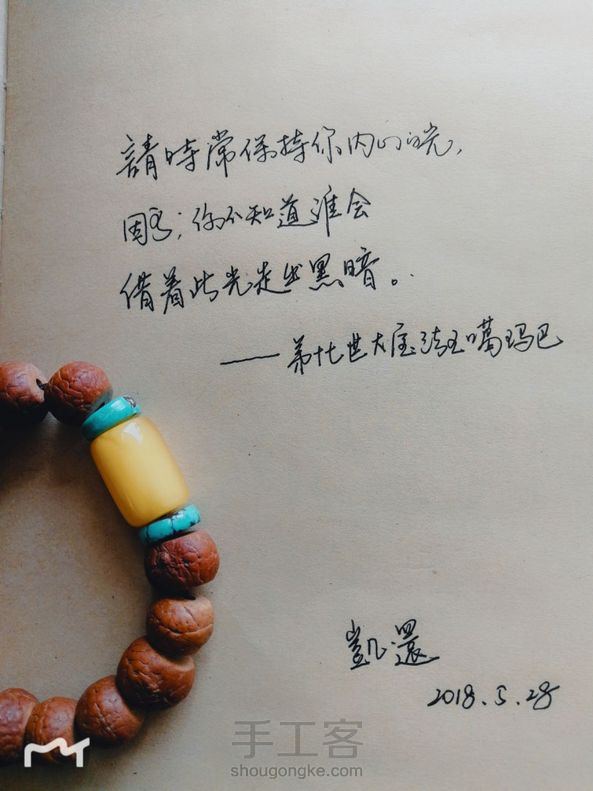 請時常保持你内心的光,
因为;你不知道谁会
借着此光走出黑暗。
——第十七世大宝法王噶玛巴
凱還
2018.5.28
手工客
shougongke.com